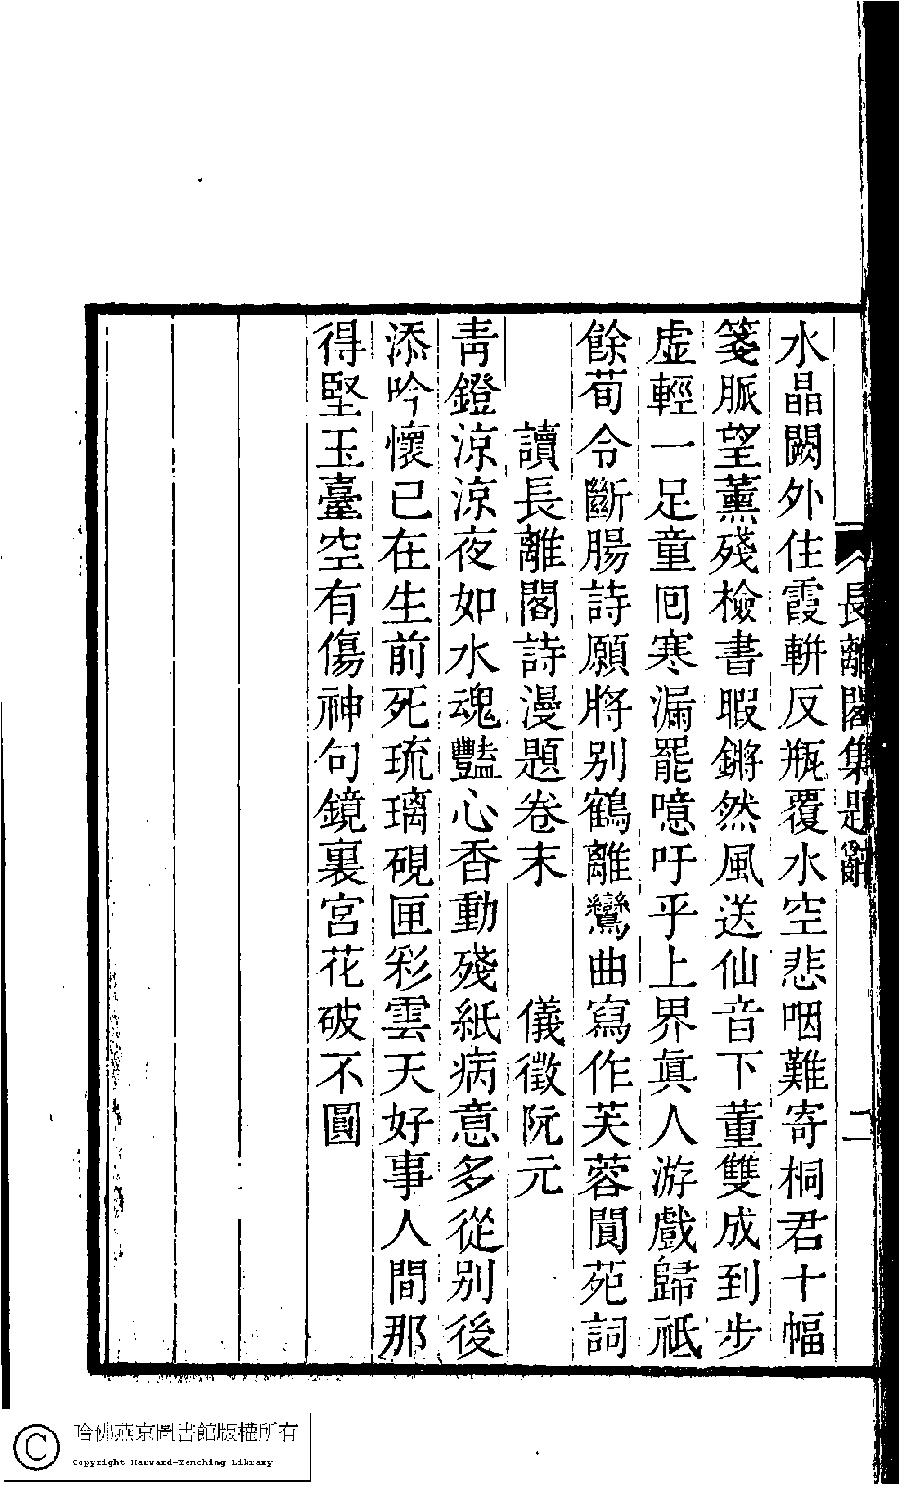 水晶闕外住霞輧反瓶覆水空悲咽難寄桐君十幅
箋脈望薰殘檢書暇鏘然風送仙音下董雙成到步
虛輕一足童囘寒漏罷噫吁乎上界眞人游戲歸祗
餘荀令斷腸詩願將别鶴離鸞曲寫作芙蓉閬苑詞
讀長離閣詩漫題卷末 儀徵阮元
青鐙涼涼夜如水魂豔心香動殘紙病意多從别後
添吟懷已在生前死琉璃硯匣彩雲天好事人間那
得堅玉臺空有傷神句鏡裏宮花破不圓
長離閣集題辭 二
哈佛燕京圖書館版權所有
Copyright Harvard-Yenching Library